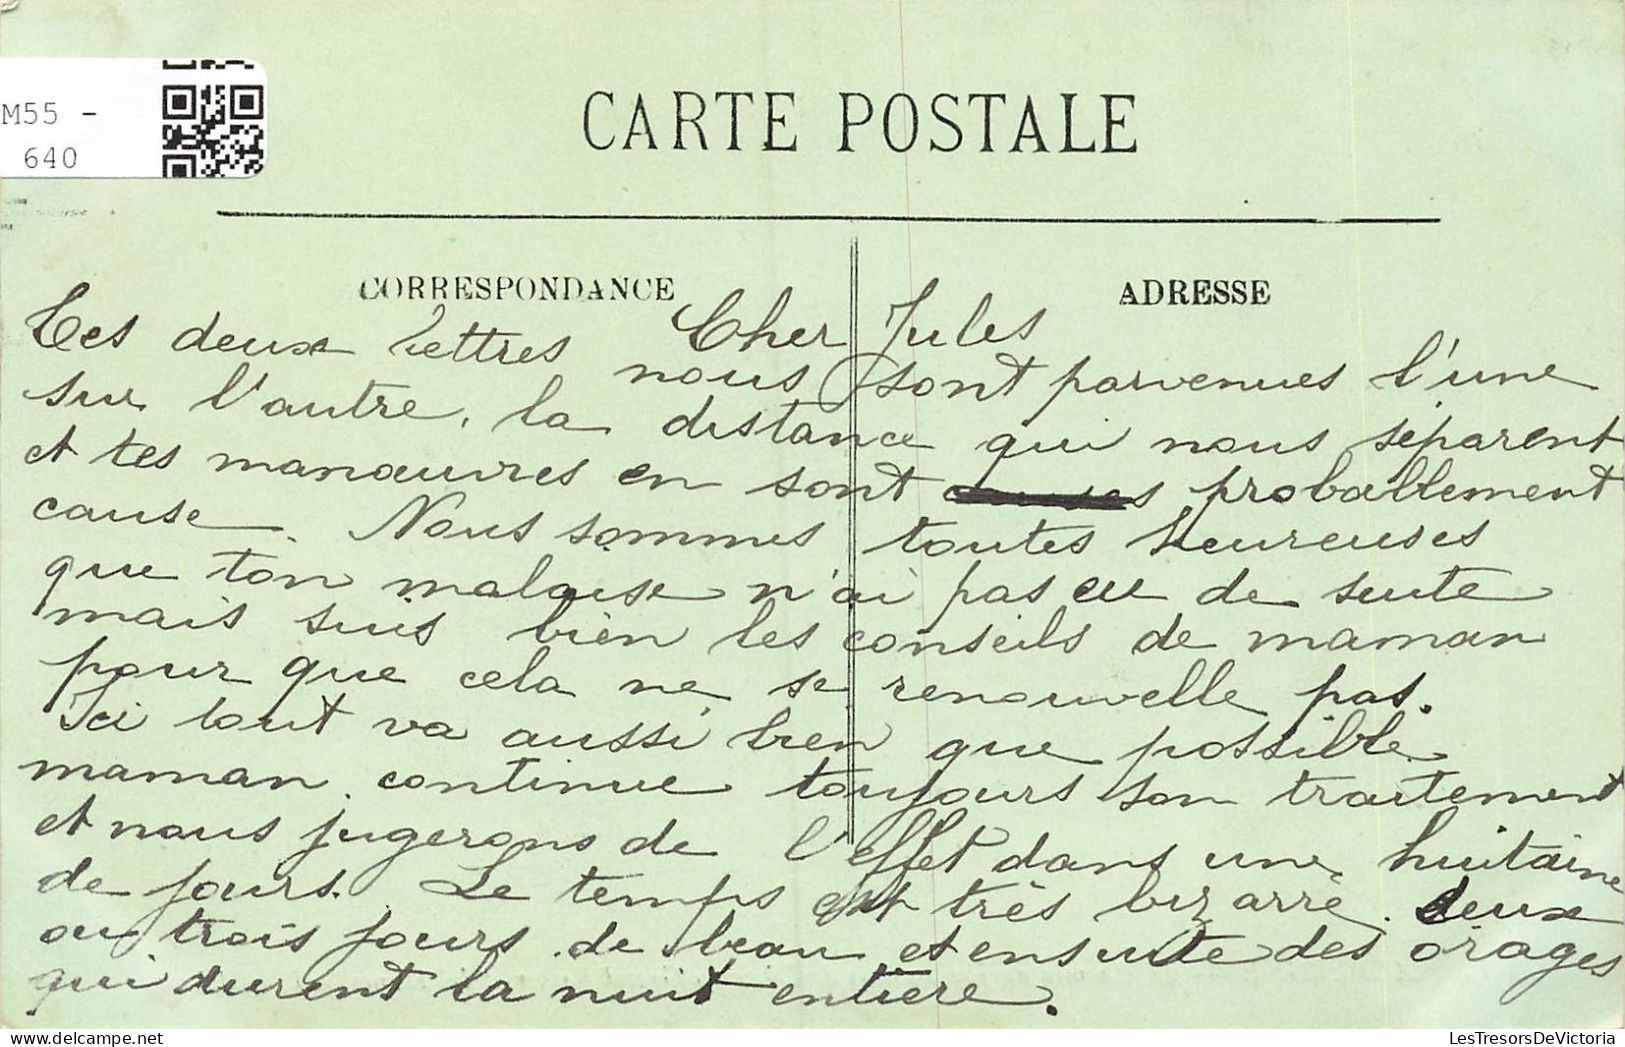 M55 -
640
CARTE POSTALE
CORRESPONDANCE
ADRESSE
Cher Jules
Tes deux lettres nous sont parvenues l'une
sur l'autre, la distance qui nous séparent
et tes manœuvres en sont causes probablement
cause. Nous sommes toutes heureuses
que ton malaise n'ai pas eu de suite
mais suis bien les conseils de maman
pour que cela ne se renouvelle pas.
Ici tout va aussi bien que possible.
maman continue toujours son traitement
et nous jugerons de l'effet dans une huitaine
de jours. Le temps est très bizarre. deux
ou trois jours de beau et ensuite des orages
qui durent la nuit entière.
LesTresorsDeVictoria